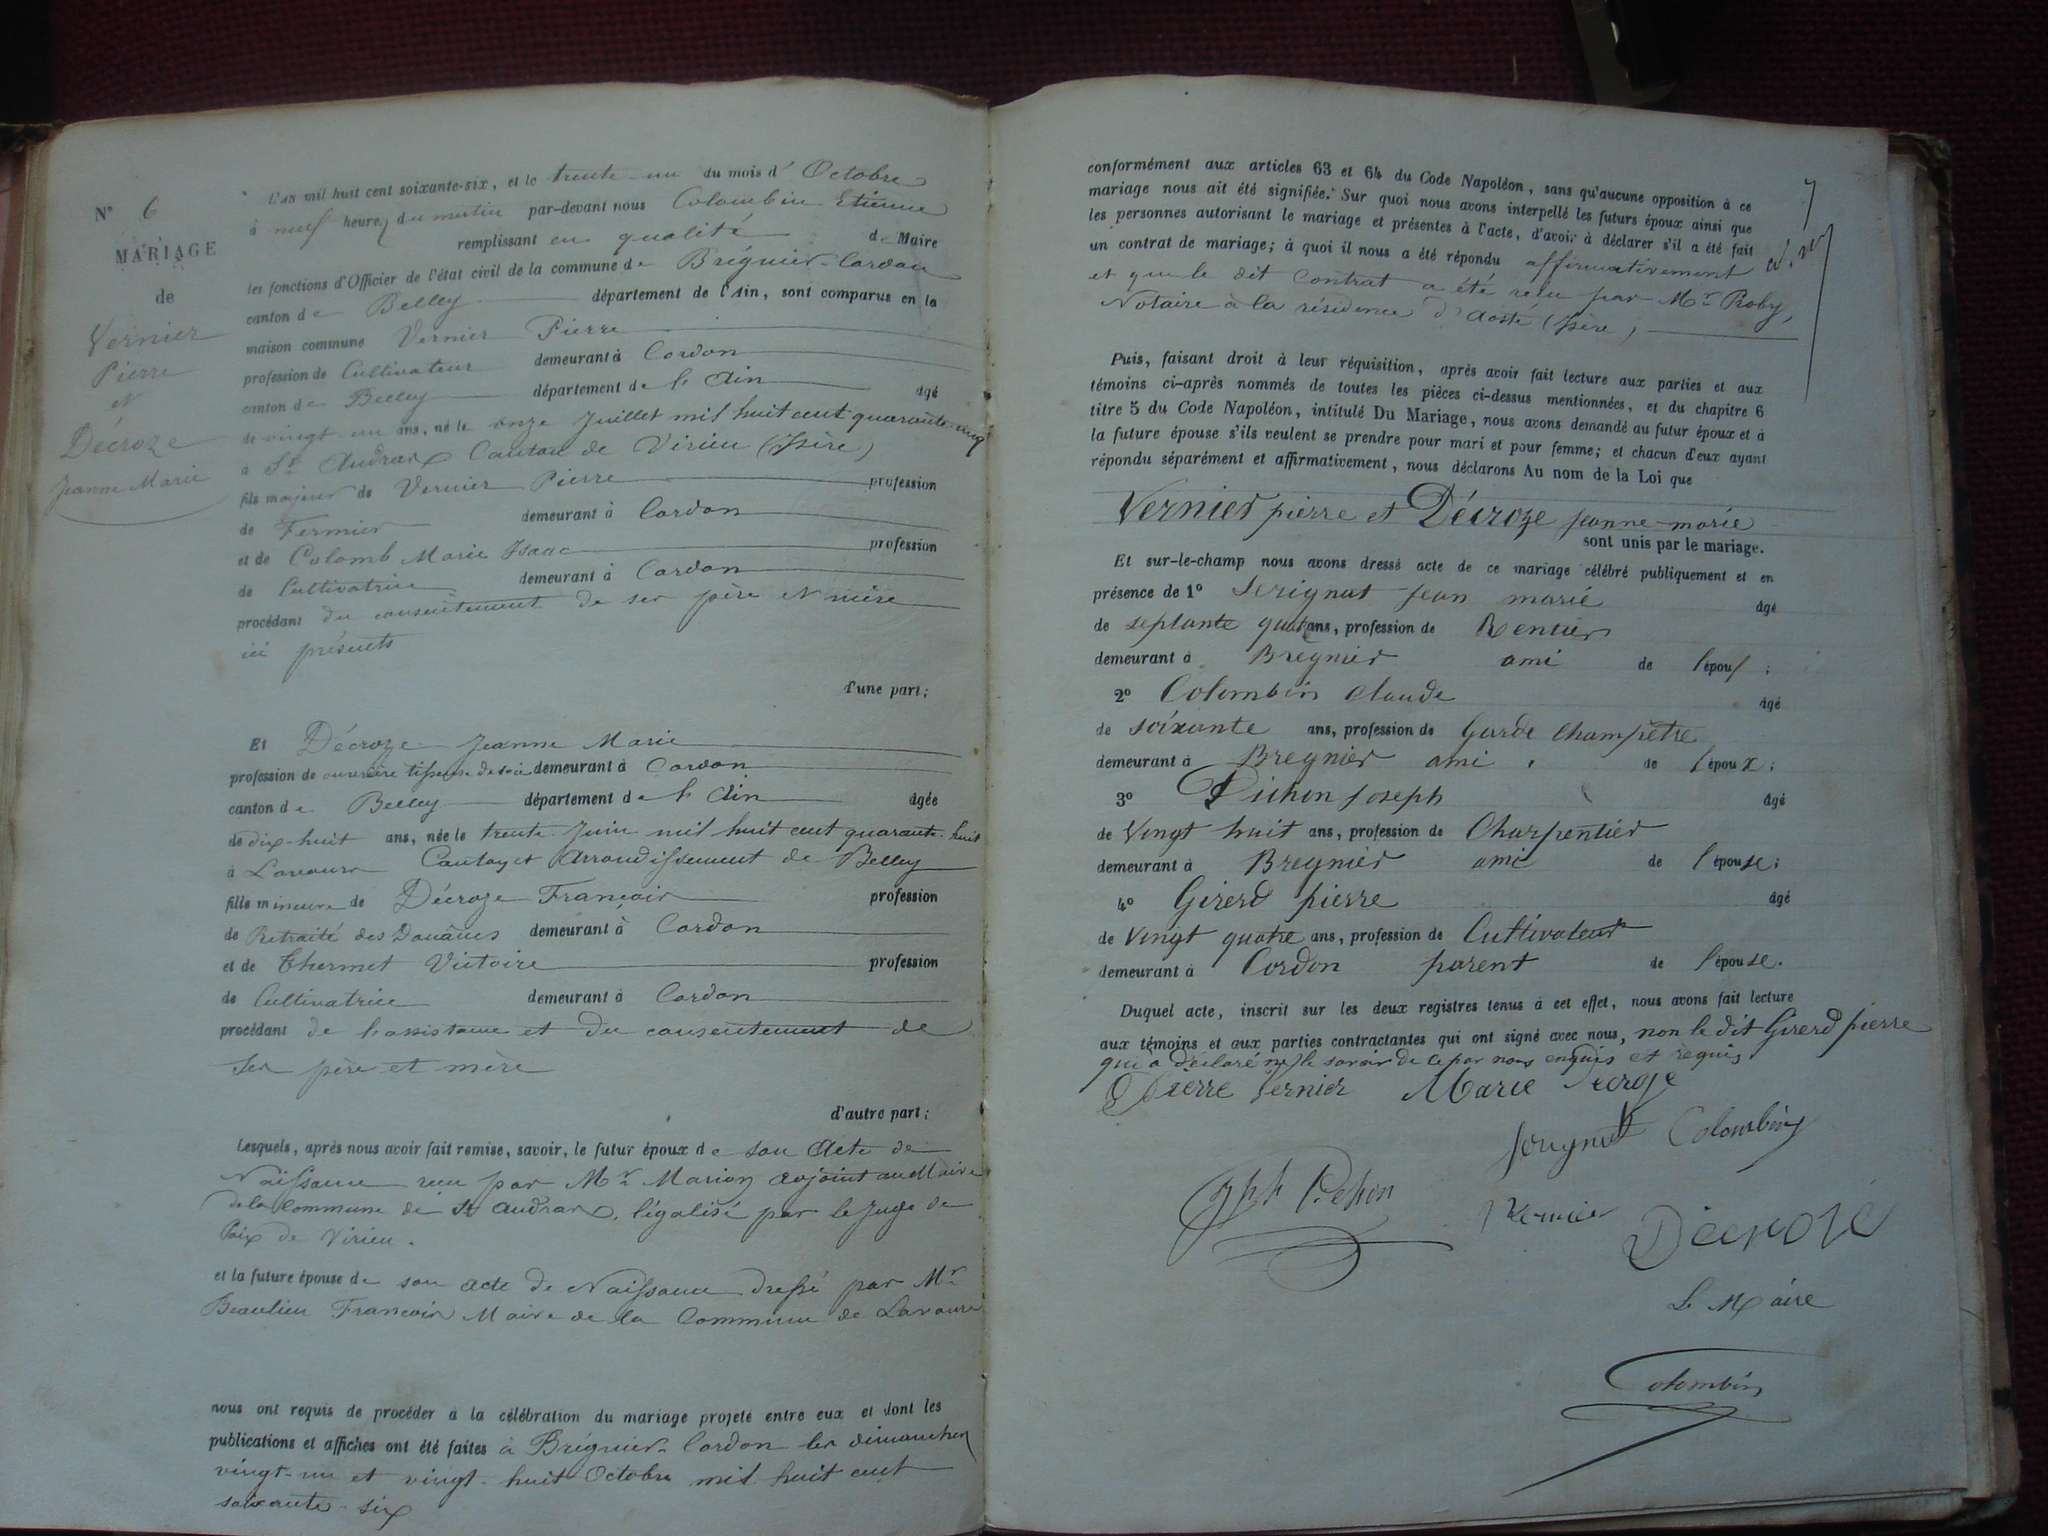 N° 6
MARIAGE
de
Vernier
Pierre
et
Décroze
Jeanne Marie
L'an mil huit cent soixante-six, et le trente-un du mois d'Octobre
à neuf heures du matin par-devant nous Colombin Etienne
remplissant en qualité de Maire
les fonctions d'Officier de l'état civil de la commune de Brégnier-Cordon
canton de Belley département de l'Ain, sont comparus en la
maison commune Vernier Pierre
profession de Cultivateur demeurant à Cordon
canton de Belley département de l'Ain âgé
de vingt-un ans, né le onze Juillet mil huit cent quarante-cinq
à St Andrax Canton de Virieu (Isère)
fils majeur de Vernier Pierre profession
de Fermier demeurant à Cordon
et de Colomb Marie Isaac profession
de Cultivatrice demeurant à Cordon
procédant du consentement de ses père et mère
ici présents
d'une part;
Et Décroze Jeanne Marie
profession de ouvrière tisseuse de soie demeurant à Cordon
canton de Belley département de l'Ain âgée
de dix-huit ans, née le trente Juin mil huit cent quarante-huit
à Lavours Canton et Arrondissement de Belley
fille mineure de Décroze François profession
de Retraité des Douânes demeurant à Cordon
et de Thermet Victoire profession
de Cultivatrice demeurant à Cordon
procédant de l'assistance et du consentement de
ses père et mère
d'autre part;
Lesquels, après nous avoir fait remise, savoir, le futur époux de son Acte de
Naissance reçu par Mr Marion adjoint au Maire
de la Commune de St Andrax, légalisé par le Juge de
Paix de Virieu.
et la future épouse de son acte de Naissance dressé par Mr
Beaulieu François Maire de la Commune de Lavours
nous ont requis de procéder à la célébration du mariage projeté entre eux et dont les
publications et affiches ont été faites à Brégnier-Cordon les dimanches
vingt-un et vingt-huit Octobre mil huit cent
soixante-six
7
conformément aux articles 63 et 64 du Code Napoléon, sans qu'aucune opposition à ce
mariage nous ait été signifiée. Sur quoi nous avons interpellé les futurs époux ainsi que
les personnes autorisant le mariage et présentes à l'acte, d'avoir à déclarer s'il a été fait
un contrat de mariage; à quoi il nous a été répondu affirmativement
et que le dit Contrat a été relu par Mr Roby,
Notaire à la résidence d'Aoste (Isère)
Puis, faisant droit à leur réquisition, après avoir fait lecture aux parties et aux
témoins ci-après nommés de toutes les pièces ci-dessus mentionnées, et du chapitre 6
titre 5 du Code Napoléon, intitulé Du Mariage, nous avons demandé au futur époux et à
la future épouse s'ils veulent se prendre pour mari et pour femme; et chacun d'eux ayant
répondu séparément et affirmativement, nous déclarons Au nom de la Loi que
Vernier pierre et Décroze jeanne-marie
sont unis par le mariage.
Et sur-le-champ nous avons dressé acte de ce mariage célébré publiquement et en
présence de 1° Serignat jean marie âgé
de septante quatre ans, profession de Rentier
demeurant à Bregnier ami de l'époux;
2° Colombin claude âgé
de soixante ans, profession de Garde Champètre
demeurant à Bregnier ami de l'époux;
3° Pichon joseph âgé
de Vingt huit ans, profession de Charpentier
demeurant à Bregnier ami de l'épouse;
4° Girerd pierre âgé
de Vingt quatre ans, profession de Cultivateur
demeurant à Cordon parent de l'épouse.
Duquel acte, inscrit sur les deux registres tenus à cet effet, nous avons fait lecture
aux témoins et aux parties contractantes qui ont signé avec nous, non le dit Girerd pierre
qui a déclaré ne le savoir de ce par nous enquis et requis
Pierre Vernier Marie Decroze
Serignat Colombin
Jph Pichon Vernier Décroze
Le Maire
Colombin